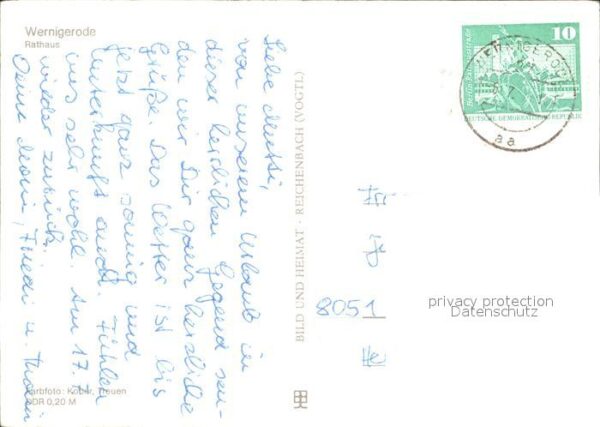 Wernigerode
Rathaus
Liebe Mutti,
von unserem Urlaub in
dieser herrlichen Gegend sen-
den wir Dir ganz herzliche
Grüße. Das Wetter ist bis
jetzt ganz sonnig und
Unterkunft auch. Fühlen
uns sehr wohl. Am 17.7
wieder zurück.
Deine Friedi u. Thomas
Farbfoto: Kober, Treuen
DDR 0,20 M
BILD UND HEIMAT · REICHENBACH (VOGTL)
10
Berlin Rathausstraße
DEUTSCHE DEMOKRATISCHE REPUBLIK
WERNIGERODE
aa
8051
privacy protection
Datenschutz